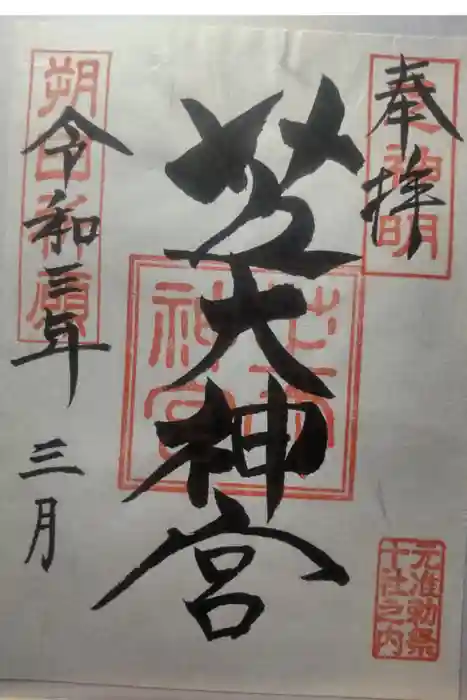 奉拝
芝神明
芝大神宮
芝大神宮
令和三年
三月
朔日祈願
元准勅祭
十社之内